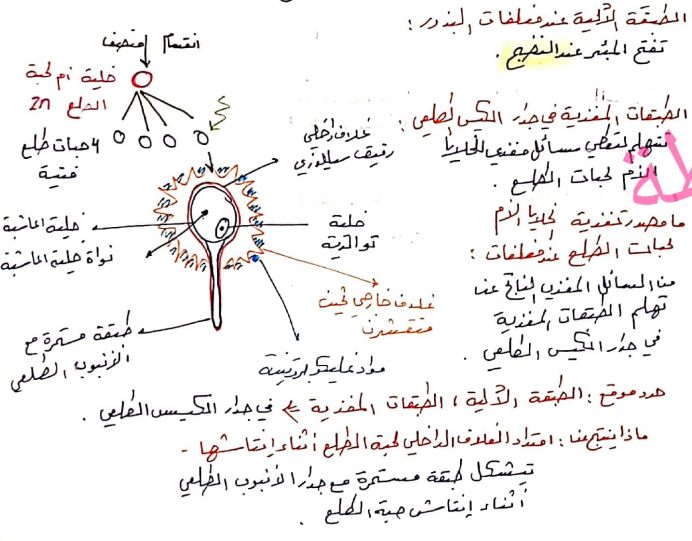 الطبقة الآلية عند مغلفات البذور :
تفتح المئبر عند النضج .
الطبقات المغذية في جدار الكيس الطلعي :
تتهلم لتعطي سائل مغذي للخلايا
الأم لحبات الطلع .
ما مصدر تغذية الخلايا الأم
لحبات الطلع عند مغلفات :
من السائل المغذي الناتج عن
تهلم الطبقات المغذية
في جدار الكيس الطلعي .
انقسام منصف
خلية أم لحبة
الطلع 2n
4 حبات طلع
فتية
غلاف داخلي
رقيق سيللوزي
خلية
توالدية
خلية إعاشية
نواة خلية إعاشية
غلاف خارجي ثخين
متقشرن
مواد غليكوبروتينية
طبقة مستمرة مع
الأنبوب الطلعي
حدد موقع : الطبقة الآلية ، الطبقات المغذية ← في جدار الكيس الطلعي .
ماذا ينتج عن : امتداد الغلاف الداخلي لحبة الطلع أثناء إنتاشها -
تشكل طبقة مستمرة مع جدار الأنبوب الطلعي
أثناء إنتاش حبة الطلع .